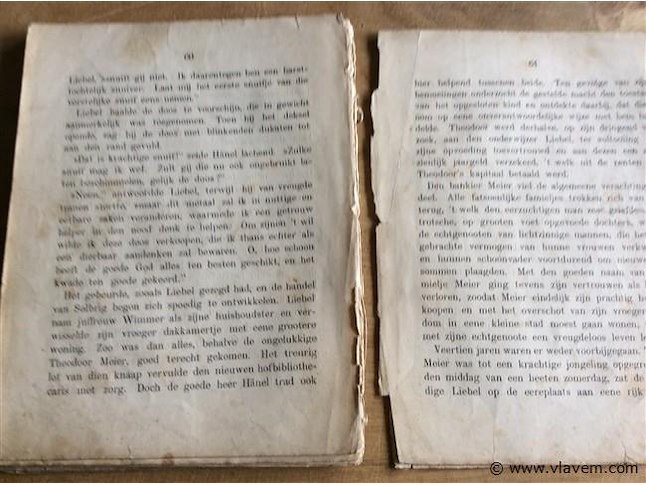 Liebel, snuift gij niet. Ik daarentegen ben een harts-
tochtelijk snuiver. Laat mij het eerste snuifje van die
vorstelijke snuif eens nemen."
Liebel haalde de doos te voorschijn, die in gewicht
aanmerkelijk was toegenomen. Toen hij het deksel
opende, zag hij de doos met blinkenden dukaten tot
aan den rand gevuld.
»Dat is krachtige snuif!" zeide Hänel lachend. »Zulke
snuif mag ik wel. Zult gij die nu ook ongebruikt la-
ten beschimmelen, gelijk de doos?"
»Neen," antwoordde Liebel, terwijl hij van vreugde
tranen stortte, maar dit metaal zal ik in nuttige en
eetbare zaken veranderen, waarmede ik een getrouw
helper in den nood denk te helpen. Om zijnen 't wil
wilde ik deze doos verkoopen, die ik thans echter als
een dierbaar aandenken zal bewaren. O, hoe schoon
heeft de goede God alles ten besten geschikt, en het
kwade ten goede gekeerd."
Het gebeurde, zooals Liebel gezegd had, en de handel
van Selbrig begon zich spoedig te ontwikkelen. Liebel
nam juffrouw Wimmer als zijne huishoudster en ver-
wisselde zijn vroeger dakkamertje met eene grootere
woning. Zoo was dan alles, behalve de ongelukkige
Theodoor Meier, goed terecht gekomen. Het treurig
lot van dien knaap vervulde den nieuwen hofbibliothe-
caris met zorg. Doch de goede heer Hänel trad ook
64
hier helpend tusschen beide. Ten gevolge van zijn
bemoeiingen onderzocht de gestelde macht den toestan
van het opgesloten kind en ontdekte daarbij, dat die
zoon op eene onverantwoordelijke wijze met hem ha
delde. Theodoor werd derhalve, op zijn dringend v
zoek, aan den onderwijzer Liebel, ter voltooiing
zijne opvoeding toevertrouwd en aan dezen een a
zienlijk jaargeld verzekerd, 't welk uit de renten
Theodoor's kapitaal betaald werd.
Den bankier Meier viel de algemeene verachting
deel. Alle fatsoenlijke familjes trokken zich van
terug, 't welk den eerzuchtigen man zoo
trotsche, op grooten voet opgevoede dochters, w
de echtgenooten van lichtzinnige mannen, die he
gebrachte vermogen van hunne vrouwen verkw
en hunnen schoonvader voortdurend om nieuwe
sommen plaagden. Met den goeden naam van
mielje Meier ging tevens zijn vertrouwen als
verloren, zoodat Meier eindelijk zijn prachtig h
koopen en met het overschot van zijn vroeger
dom in eene kleine stad moest gaan wonen,
met zijne echtgenoote een vreugdeloos leven le
Veertien jaren waren er weder voorbijgegaan. T
Meier was tot een krachtige jongeling opgegr
den middag van een heeten zomerdag, zat de
dige Liebel op de eereplaats aan eene rijk
© www.vlavem.com